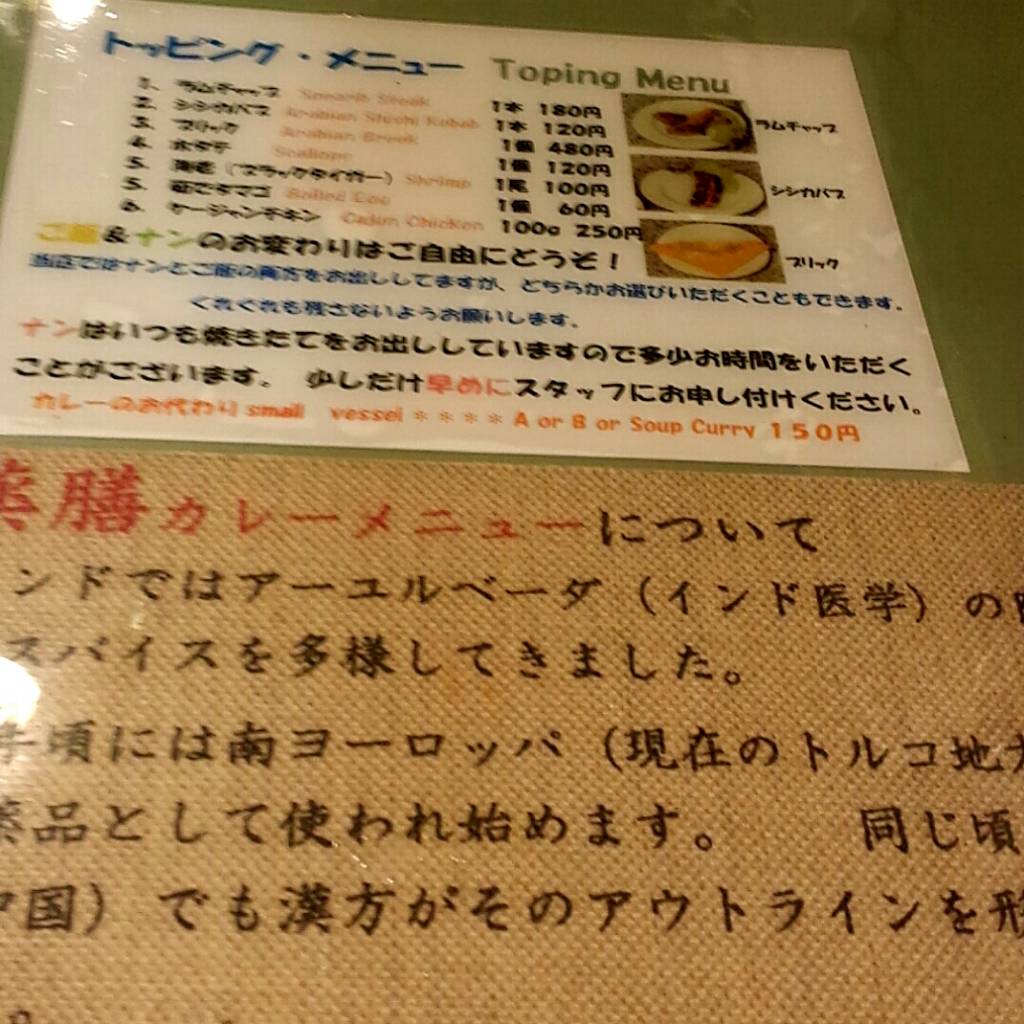 トッピング・メニュー Toping Menu
1. ラムチャップ Spearib Steak 1本 180円
2. シシカバブ Arabian Shishi Kabab 1本 120円
3. ブリック Arabian Breek 1個 480円
4. ホタテ Scallops 1個 120円
5. 海老（ブラックタイガー） Shrimp 1尾 100円
5. 茹でタマゴ Boiled Egg 1個 60円
6. ケージャンチキン Cajun Chicken 100g 250円
ラムチャップ
シシカバブ
ブリック
ご飯&ナンのお変わりはご自由にどうぞ！
当店ではナンとご飯の両方をお出ししてますが、どちらかお選びいただくこともできます。
くれぐれも残さないようお願いします。
ナンはいつも焼きたてをお出ししていますので多少お時間をいただく
ことがございます。 少しだけ早めにスタッフにお申し付けください。
カレーのお代わり small vessel ＊＊＊＊ A or B or Soup Curry １５０円
薬膳カレーメニューについて
ンドではアーユルベーダ（インド医学）の
スパイスを多様してきました。
年頃には南ヨーロッパ（現在のトルコ地方
薬品として使われ始めます。 同じ頃
中国）でも漢方がそのアウトラインを形